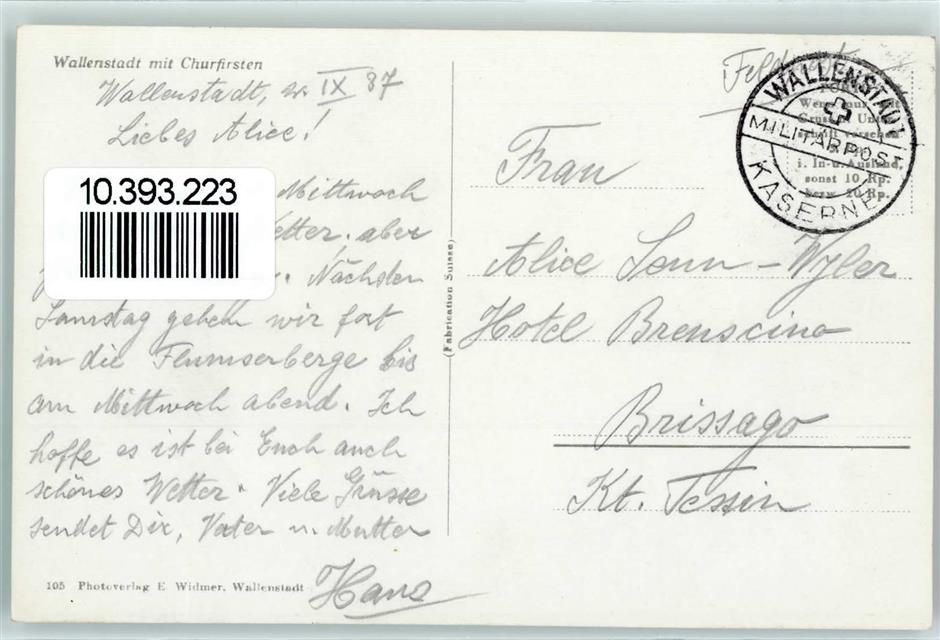 Wallenstadt mit Churfirsten
Wallenstadt, IX 37
Liebes Alice!
10.393.223
Mittwoch
Wetter, aber
Nächsten
Samstag gehen wir fort
in die Flumserberge bis
am Mittwoch abend. Ich
hoffe es ist bei Euch auch
schönes Wetter. Viele Grüsse
sendet Dir, Vater u. Mutter
Hans
105 Photoverlag E. Widmer, Wallenstadt
(Fabrication Suisse)
WALLENSTADT
MILITÄRPOST
KASERNE
i. In- u. Ausland,
sonst 10 Rp.
bezw. 20 Rp.
Frau
Alice Senn-Wyler
Hotel Brenscino
Brissago
Kt. Tessin